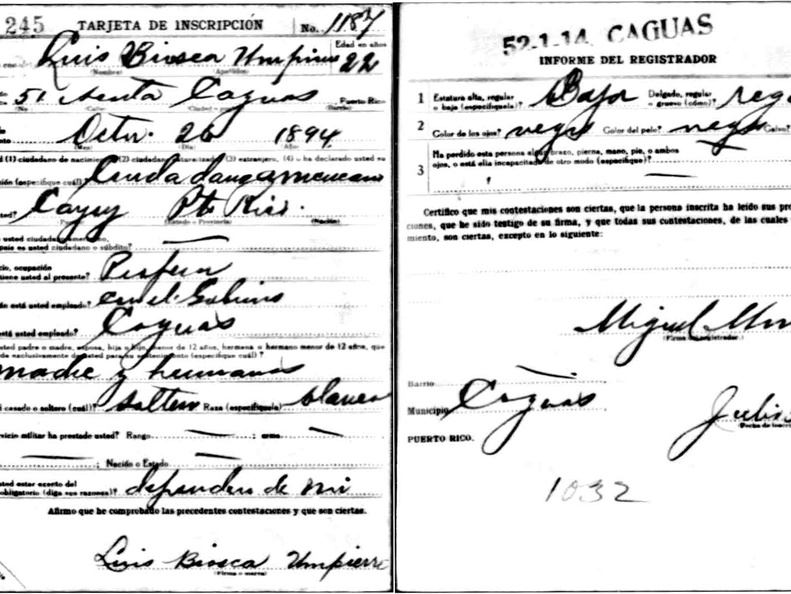 245 TARJETA DE INSCRIPCIÓN No. 1187
Luis Biosca Umpierre
Edad en años
22
(Nombre) (Apellidos)
51 Acosta Caguas Puerto Rico
(No.) (Calle) (Barrio)
Octu. 26 1894
(Mes) (Día) (Año)
(1) ciudadano de nacimiento, (2) ciudadano naturalizado, (3) extranjero, (4) o ha declarado usted su
(especifique cuál)? Ciudadano americano
Cayey Pto Rico.
(Nación)
usted ciudadano americano,
país es usted ciudadano o súbdito?
ocupación
tiene usted al presente? Profesor
está usted empleado? en el Gobierno
está usted empleado? Caguas
usted padre o madre, esposa, hija o hijo menor de 12 años, hermana o hermano menor de 12 años, que
de exclusivamente de usted para su sostenimiento (especifique cuál)?
madre y hermanos
casado o soltero (cuál)? soltero Raza (especifíquela) blanca
servicio militar ha prestado usted? Rango ; arma
; Nación o Estado
usted estar exento del
obligatorio (diga sus razones)? dependen de mi
Afirmo que he comprobado las precedentes contestaciones y que son ciertas.
Luis Biosca Umpierre
(Firma o marca)
52-1-14. CAGUAS
INFORME DEL REGISTRADOR
1 Estatura alta, regular o baja (especifíquela)? Bajo Delgado, regular o grueso (cómo)? reg
2 Color de los ojos? negro Color del pelo? negro Calvo?
3 Ha perdido esta persona algún brazo, pierna, mano, pie, o ambos
ojos, o está ella incapacitada de otro modo (especifique)?
Certifico que mis contestaciones son ciertas, que la persona inscrita ha leído sus pro
ciones, que he sido testigo de su firma, y que todas sus contestaciones, de las cuales
miento, son ciertas, excepto en lo siguiente:
Miguel
(Firma del registrador)
Barrio
Municipio Caguas
Julio
(Fecha de inscri
PUERTO RICO.
1032